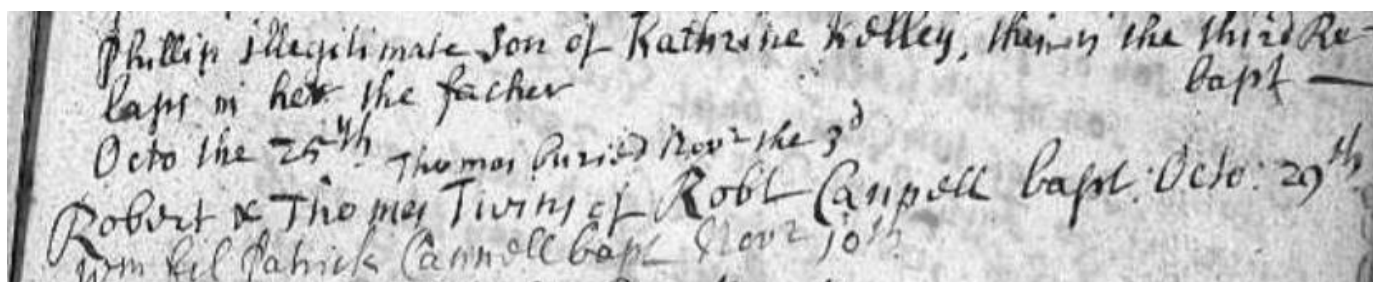 Phillip illegitimate Son of Kathrine Kelley, this is the third Re-
laps in her the facher bapt —
Octo the 25th Thomas buried Novr the 3d
Robert & Thomas Twins of Robt Cannell bapt: Octo: 29th
Wm fil Patrick Cannell bapt Novr 10th